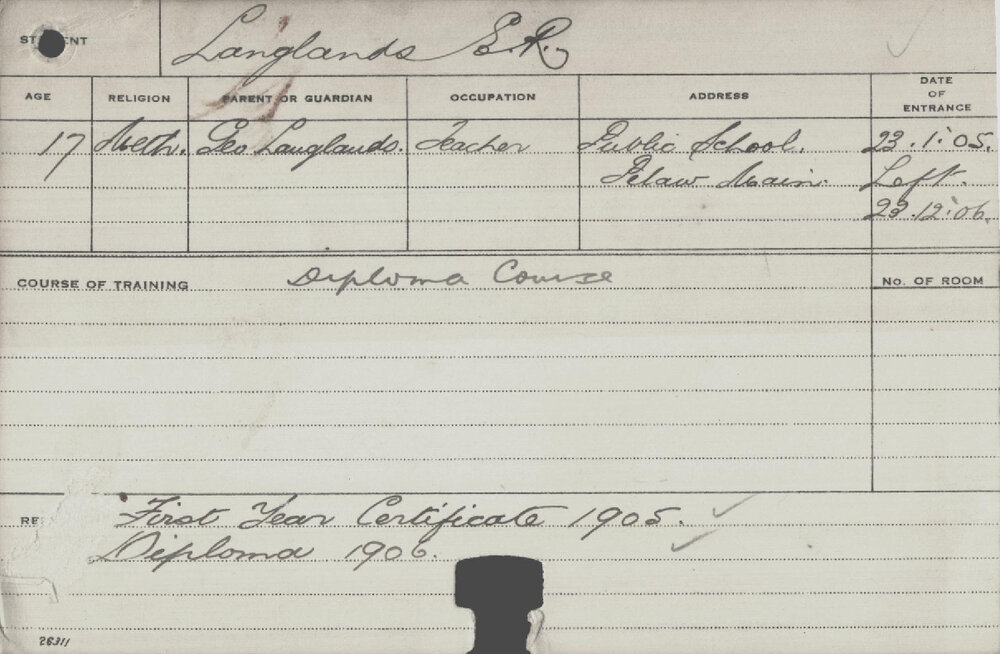 STUDENT Langlands E.R.
AGE RELIGION PARENT OR GUARDIAN OCCUPATION ADDRESS DATE OF ENTRANCE
17 Meth. Geo Langlands. Teacher Public School. 23.1.05.
Pelaw Main. Left.
23.12.06.
COURSE OF TRAINING Diploma Course No. OF ROOM
RE First Year Certificate 1905.
Diploma 1906.
26311